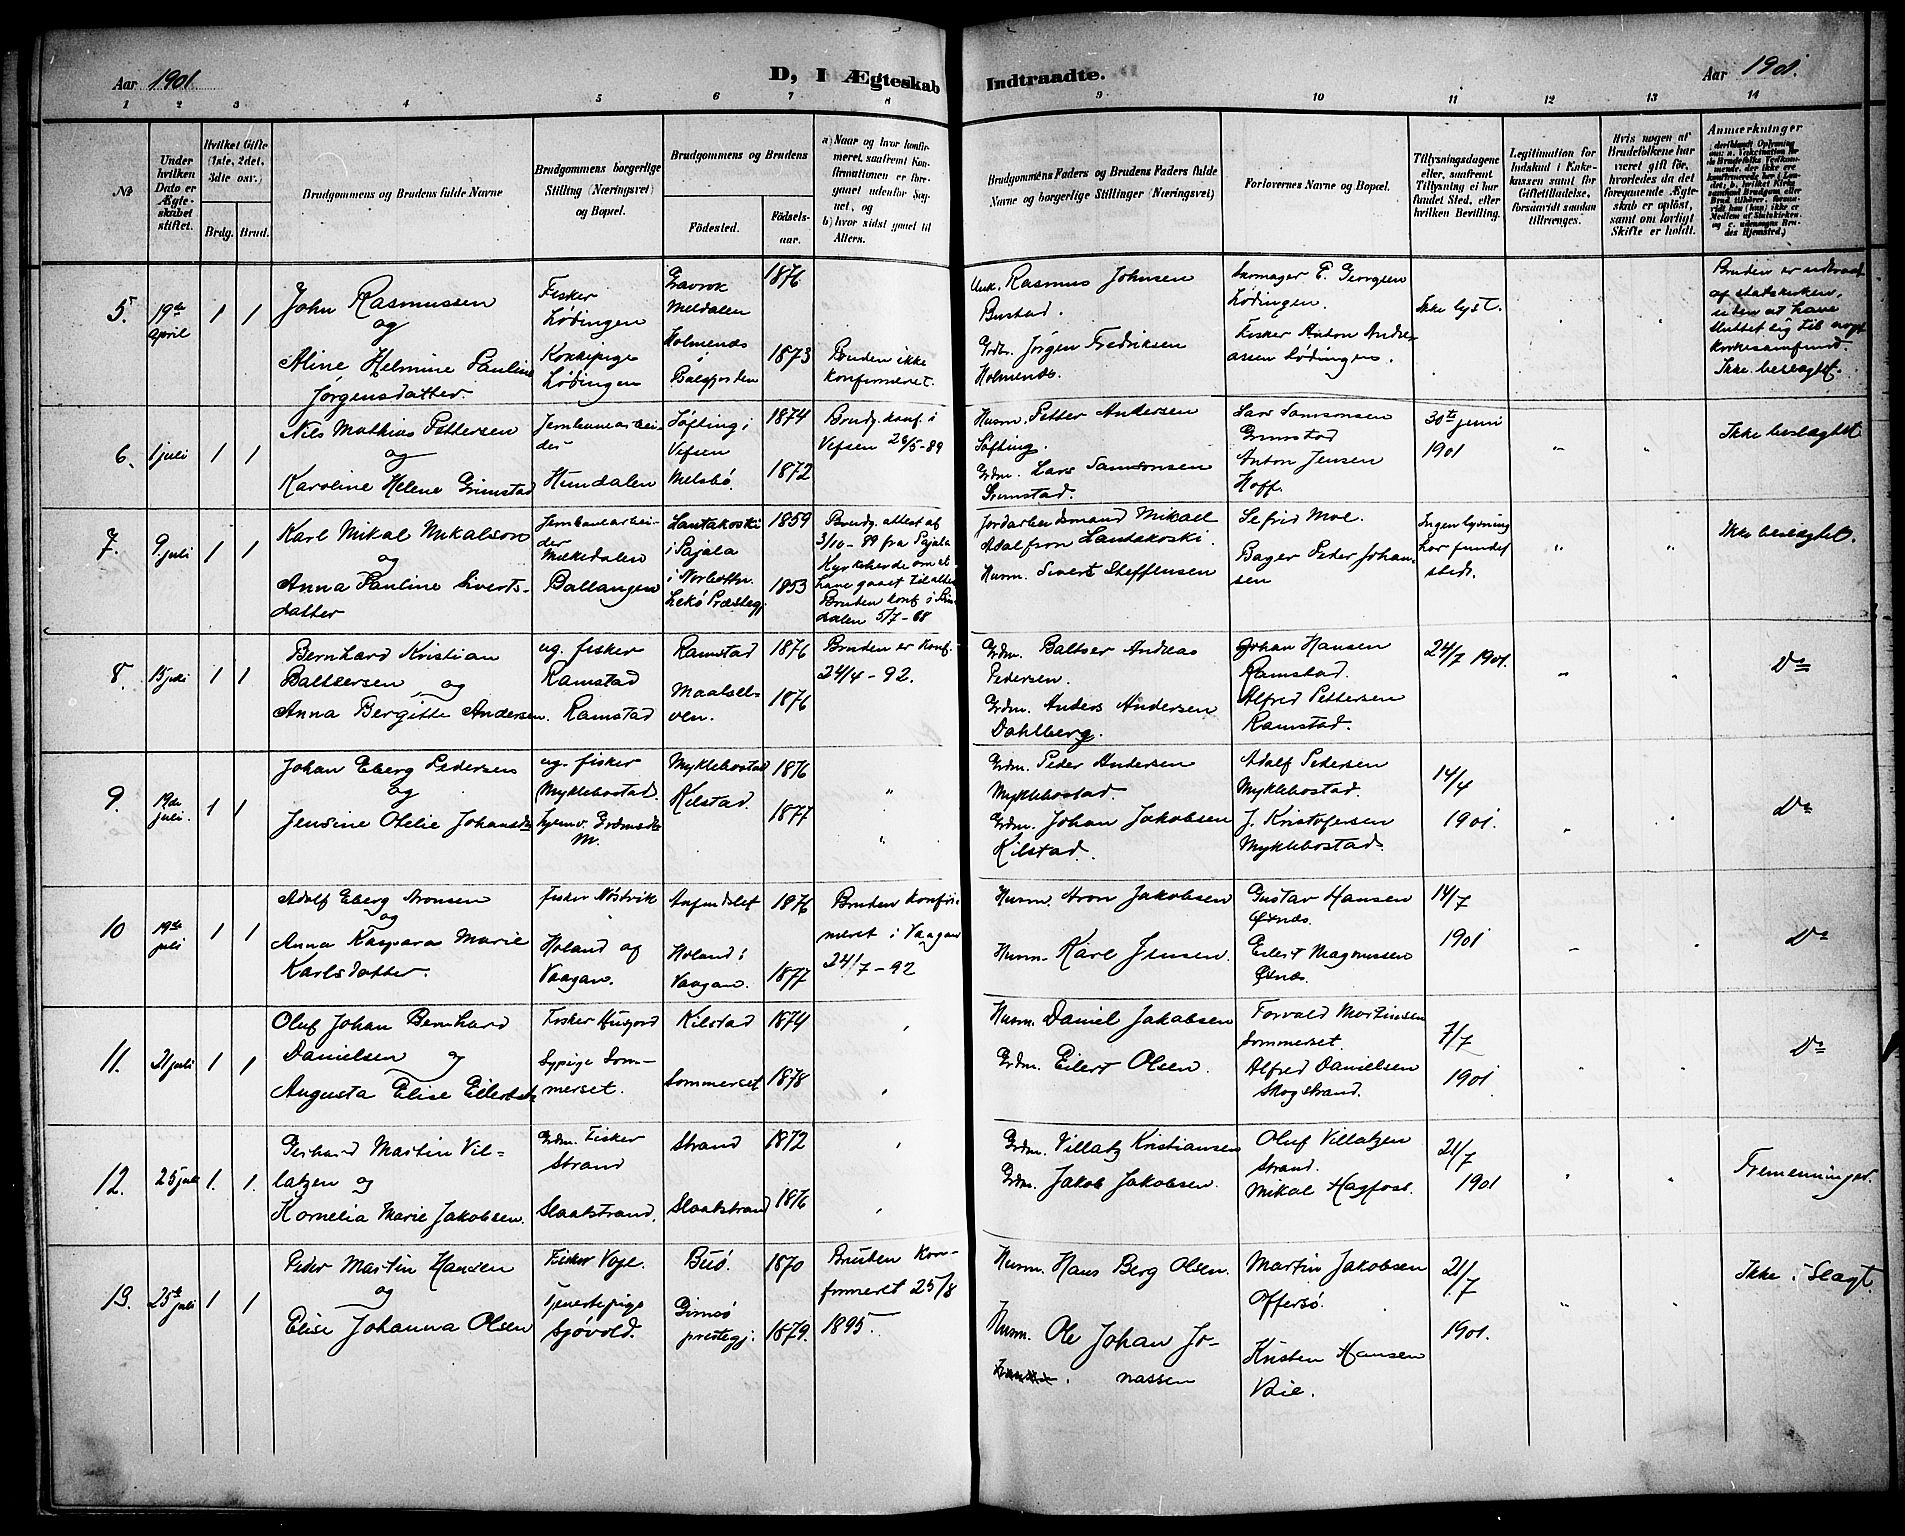 Aar 1901.
D, I Ægteskab Indtraadte.
Aar 1901.
1 2 3 4 5 6 7 8 9 10 11 12 13 14
No
Under hvilken Dato er Ægteskabet stiftet.
Hvilket Gifte (1ste, 2det, 3die osv.)
Brdg. Brud.
Brudgommens og Brudens fulde Navne
Brudgommens borgerlige Stilling (Næringsvei) og Bopæl.
Brudgommens og Brudens
Födested.
Födselsaar.
a) Naar og hvor konfirmeret, saafremt Konfirmationen er foregaaet udenfor Sognet, og
b) hvor sidst gaaet til Alters.
Brudgommens Faders og Brudens Faders fulde Navne og borgerlige Stillinger (Næringsvei)
Forlovernes Navne og Bopæl.
Tillysningsdagene eller, saafremt Tillysning ei har fundet Sted, efter hvilken Bevilling.
Legitimation for Indskud i Enkekassen samt for Giftetilladelse, forsaavidt saadan tiltrenges.
Hvis nogen af Brudefolkene har været gift för, hvorledes da det foregaaende Ægteskab er oplöst, samt om lovligt Skifte er holdt.
Anmærkninger
5. 19de april 1 1
John Rasmussen
og
Aline Helmine Pauline
Jørgensdatter
Fisker
Lødingen
Kokkepige
Lødingen
Meldalen
Holmenes
i
Balsfjorden
1876
1873
Bruden ikke
konfirmeret.
Rasmus Johnsen
Bustad.
Grdbr. Jørgen Fredriksen
Holmenes.
Skomager E. Georgsen
Lødingen.
Fisker Anton Andreassen Lødingen.
Ikke lyst.
Bruden er udtraadt
af statskirken,
uden at have
sluttet sig til noget
kirkesamfund.
Ikke beslægtet.
6. 1 juli 1 1
Nils Mathias Pettersen
og
Karoline Helene Grimstad
Jernbanearbeider
Hundalen
Søfting i
Vefsen
Melsbö.
1874
1872
Brudg. konf. i
Vefsen 26/5-89
Husm. Petter Andersen
Söfting.
Grdm. Lars Samsonsen
Grimstad.
Lars Samsonsen
Grimstad
Anton Jensen
Hoff.
30te juni
1901
Ikke beslægtet
7. 9 juli 1 1
Karl Mikal Mikalson
og
Anna Pauline Sivertsdatter
Jernbanearbeider
Melkedalen
Ballangen
Lantakoski
i Pajala
i Norbotten
Lekö Præstegj.
1859
1853
Brudg. attest af
3/10-99 fra Pajala
Kyrkoherde om at
have gaaet til alters
Bruden konf. i Bindalen 5/7-68
Mikael
Adalfron Lantakoski.
Husm. Sivert Steffensen
Sefrid Moe.
Bager Peder Johansen
Ingen lysning
har fundet
sted.
Ikke beslægtet.
8. 15 juli 1 1
Bernhard Kristian
Baltsersen og
Anna Bergitte Andersen.
ug. fisker
Ramstad
Ramstad
Ramstad
Maalselven.
1876
1876
Bruden er konf.
24/4-92.
Grdm. Baltser Andreas
Pedersen.
Grdm. Anders Andersen
Dahlberg.
Johan Hansen
Ramstad.
Alfred Pettersen
Ramstad.
24/7 1901.
Do
9. 19de juli. 1 1
Johan Eberg Pedersen
og
Jensine Otelie Johansdr
ug. fisker
Myklebostad.
hjemv. Grdmsdtr
M.
Myklebostad
Kilstad.
1876
1877
"
"
Grdm. Peder Andersen
Myklebostad.
Grdm. Johan Jakobsen
Kilstad.
Adolf Pedersen
Myklebostad.
J. Kristofersen
Myklebostad.
14/4
1901.
Do
10 19de juli 1 1
Adolf Eberg Aronsen
og
Anna Kaspara Marie
Karlsdatter.
Fisker Nöstvik
Holand af
Vaagan.
Arfindslet
Holand i
Vaagan.
1876
1877
Bruden konfirmeret i Vaagan
24/7-92
Husm. Aron Jakobsen
Husm. Karl Jensen.
Gustav Hansen
Öxnes.
Eilert Magnussen
Öxnes.
14/7
1901
Do
11. 21 juli 1 1
Oluf Johan Bernhard
Danielsen og
Augusta Elise Eilertsdtr
Fisker Husjord
Sypige Sommerset.
Kilstad
Sommerset
1874
1878
Husm. Daniel Jakobsen
Grdm. Eilert Olsen.
Torvald Martinsen
Sommerset.
Alfred Danielsen
Skogstrand.
7/7
1901
Do
12. 25 juli 1. 1.
Gerhard Martin Villatzen og
Kornelia Marie Jakobsen.
Grdm. Fisker
Strand
Slaatstrand.
Strand
Slaatstrand
1872
1876
Grdm. Villatz Kristiansen
Grdm. Jakob Jakobsen.
Oluf Villatzen
Strand.
Mikal Hagfost.
21/7
1901
Fremenninger.
13. 25de juli 1 1
Peder Martin Hansen
og
Elise Johanna Olsen
Fisker Voje.
Tjenestepige
Sjövold.
Buö.
Gimsö
prestegj.
1870
1879.
Bruden konformeret 25/8
1895.
Husm. Hans Berg Olsen.
Husm. Ole Johan Jonassen
Martin Jakobsen
Offersö.
Kristen Hansen
Voie.
21/7
1901.
Ikke i Slagt.